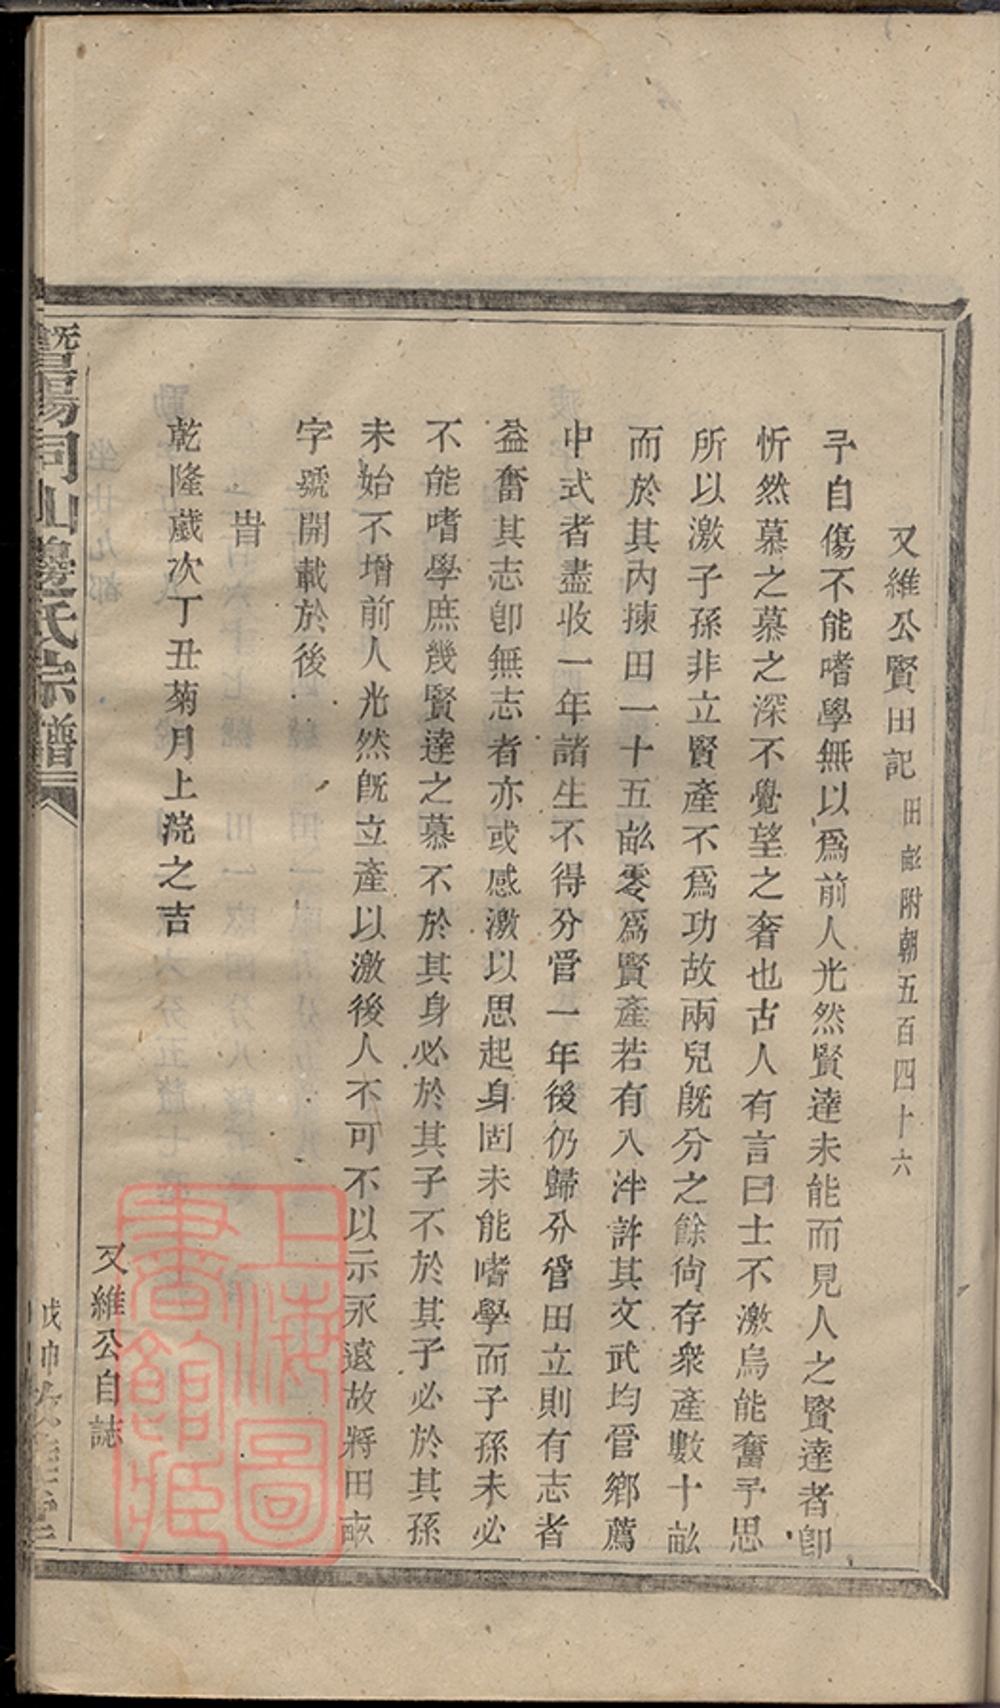 又維公賢田記田畝附朝五百四十六
予自傷不能嗜學無以爲前人光然賢達未能而見人之賢達者卽
忻然慕之慕之深不覺望之奢也古人有言曰士不激烏能奮予思
所以激子孫非立賢產不爲功故兩兒旣分之餘尙存衆產數十畝
而於其內揀田一十五畝零爲賢產若有入泮許其文武均管鄉薦
中式者盡收一年諸生不得分管一年後仍歸分管田立則有志者
益奮其志卽無志者亦或感激以思起身固未能嗜學而子孫未必
不能嗜學庶幾賢達之慕不於其身必於其子不於其子必於其孫
未始不增前人光然旣立產以激後人不可不以示永遠故將田畝
字號開載於後
旹
乾隆歲次丁丑菊月上浣之吉
又維公自誌
暨陽同山邊氏宗譜
上海圖書館藏